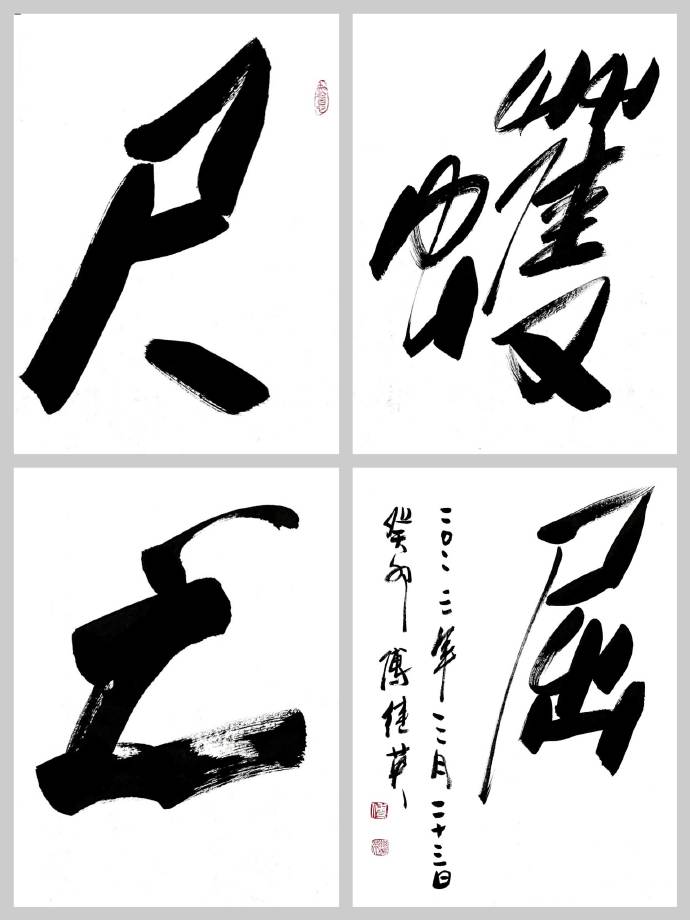 尺
蠖
之
屈
二〇二三年三月二十三日
癸卯 傅佳華